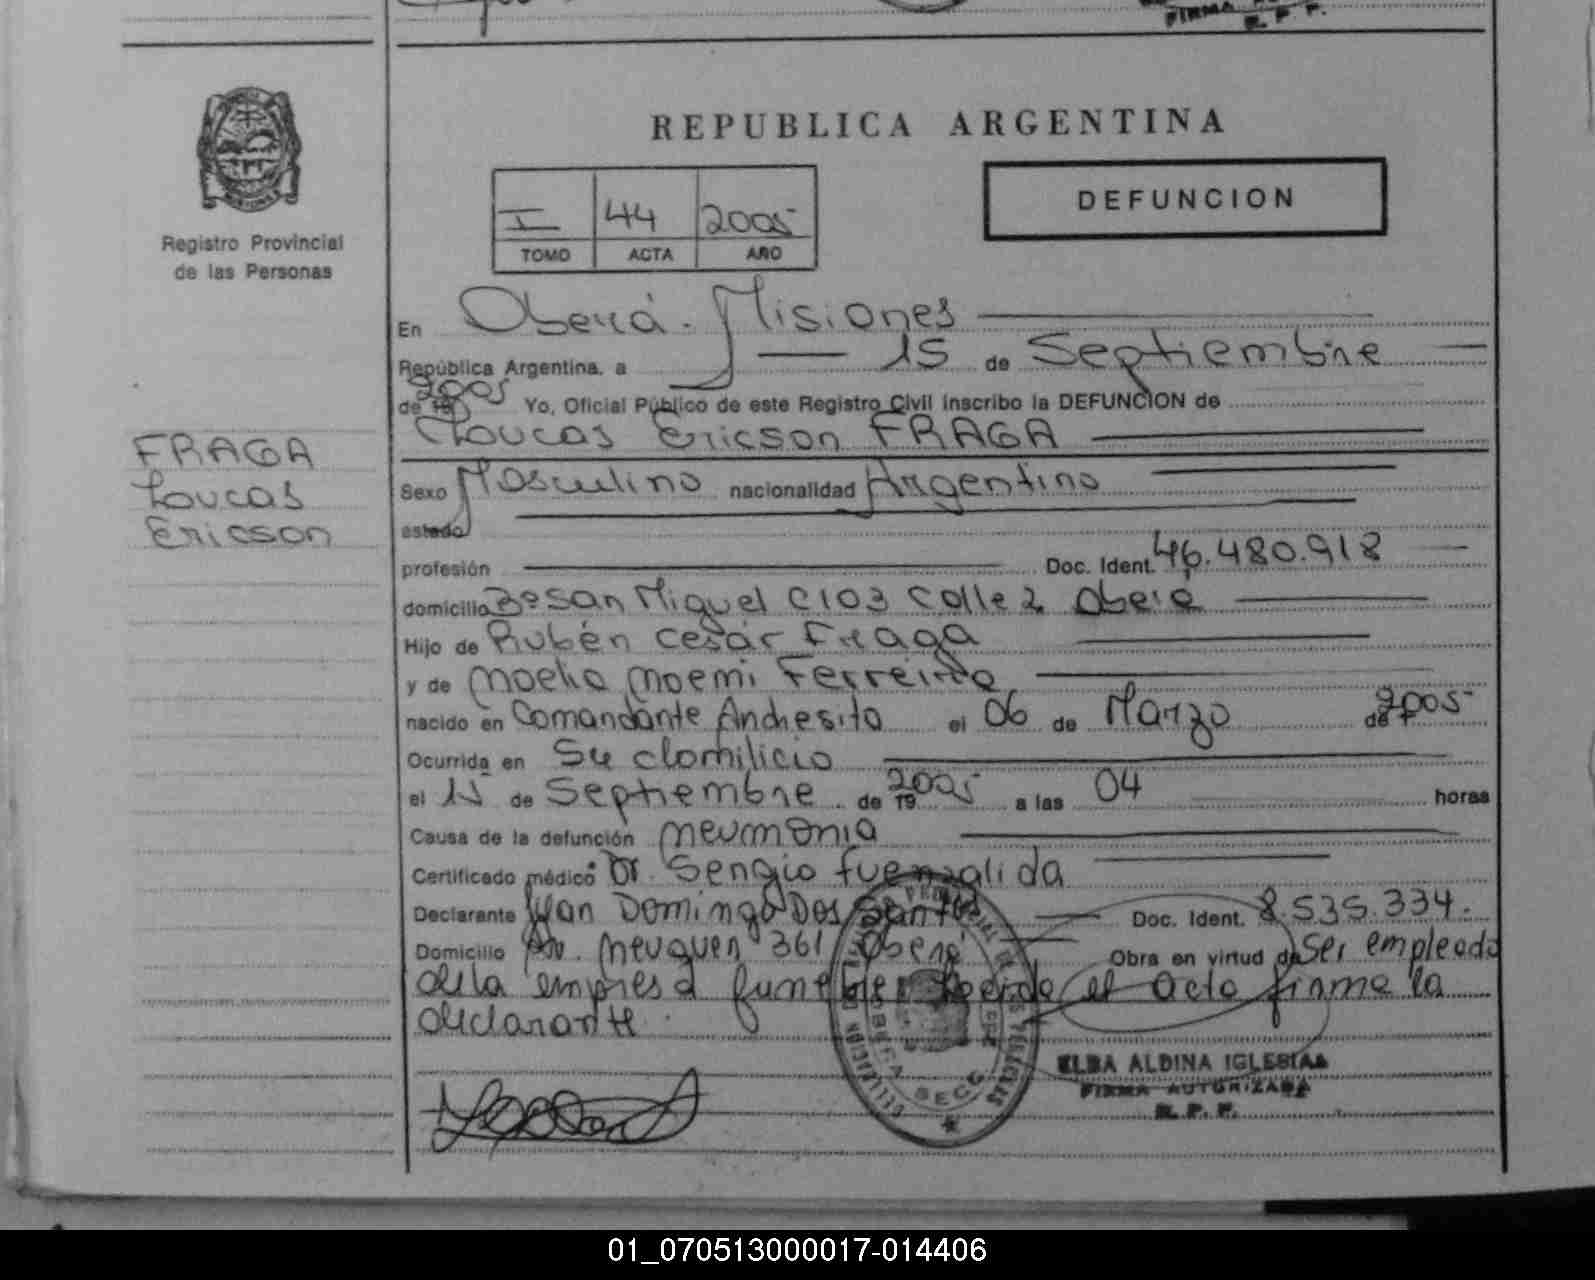 FIRMA
R. P. P.
REPUBLICA ARGENTINA
DEFUNCION
I 44 2005
TOMO ACTA AÑO
Registro Provincial
de las Personas
En Oberá. Misiones
República Argentina, a 15 de Septiembre
de 19 2005 Yo, Oficial Público de este Registro Civil inscribo la DEFUNCION de
Loucas Ericson FRAGA
FRAGA
Loucas
Ericson
Sexo Masculino nacionalidad Argentino
estado
profesión Doc. Ident. 46.480.918
domicilio Bº San Miguel C103 Calle 2 Oberá
Hijo de Rubén Cesar Fraga
y de Noelia Noemi Ferreira
nacido en Comandante Andresito el 06 de Marzo de 2005
Ocurrida en Su domilicio
el 15 de Septiembre de 19 2005 a las 04 horas
Causa de la defunción neumonia
Certificado médico Dr. Sergio Fuenzalida
Declarante Juan Domingo Dos Santos Doc. Ident. 8.535.334.
Domicilio Av. Neuquen 361 Oberá Obra en virtud de Ser empleado
de la empresa funebre Leida el acta firma la
declarante.
ELBA ALDINA IGLESIAS
FIRMA AUTORIZADA
R. P. P.
01_070513000017-014406